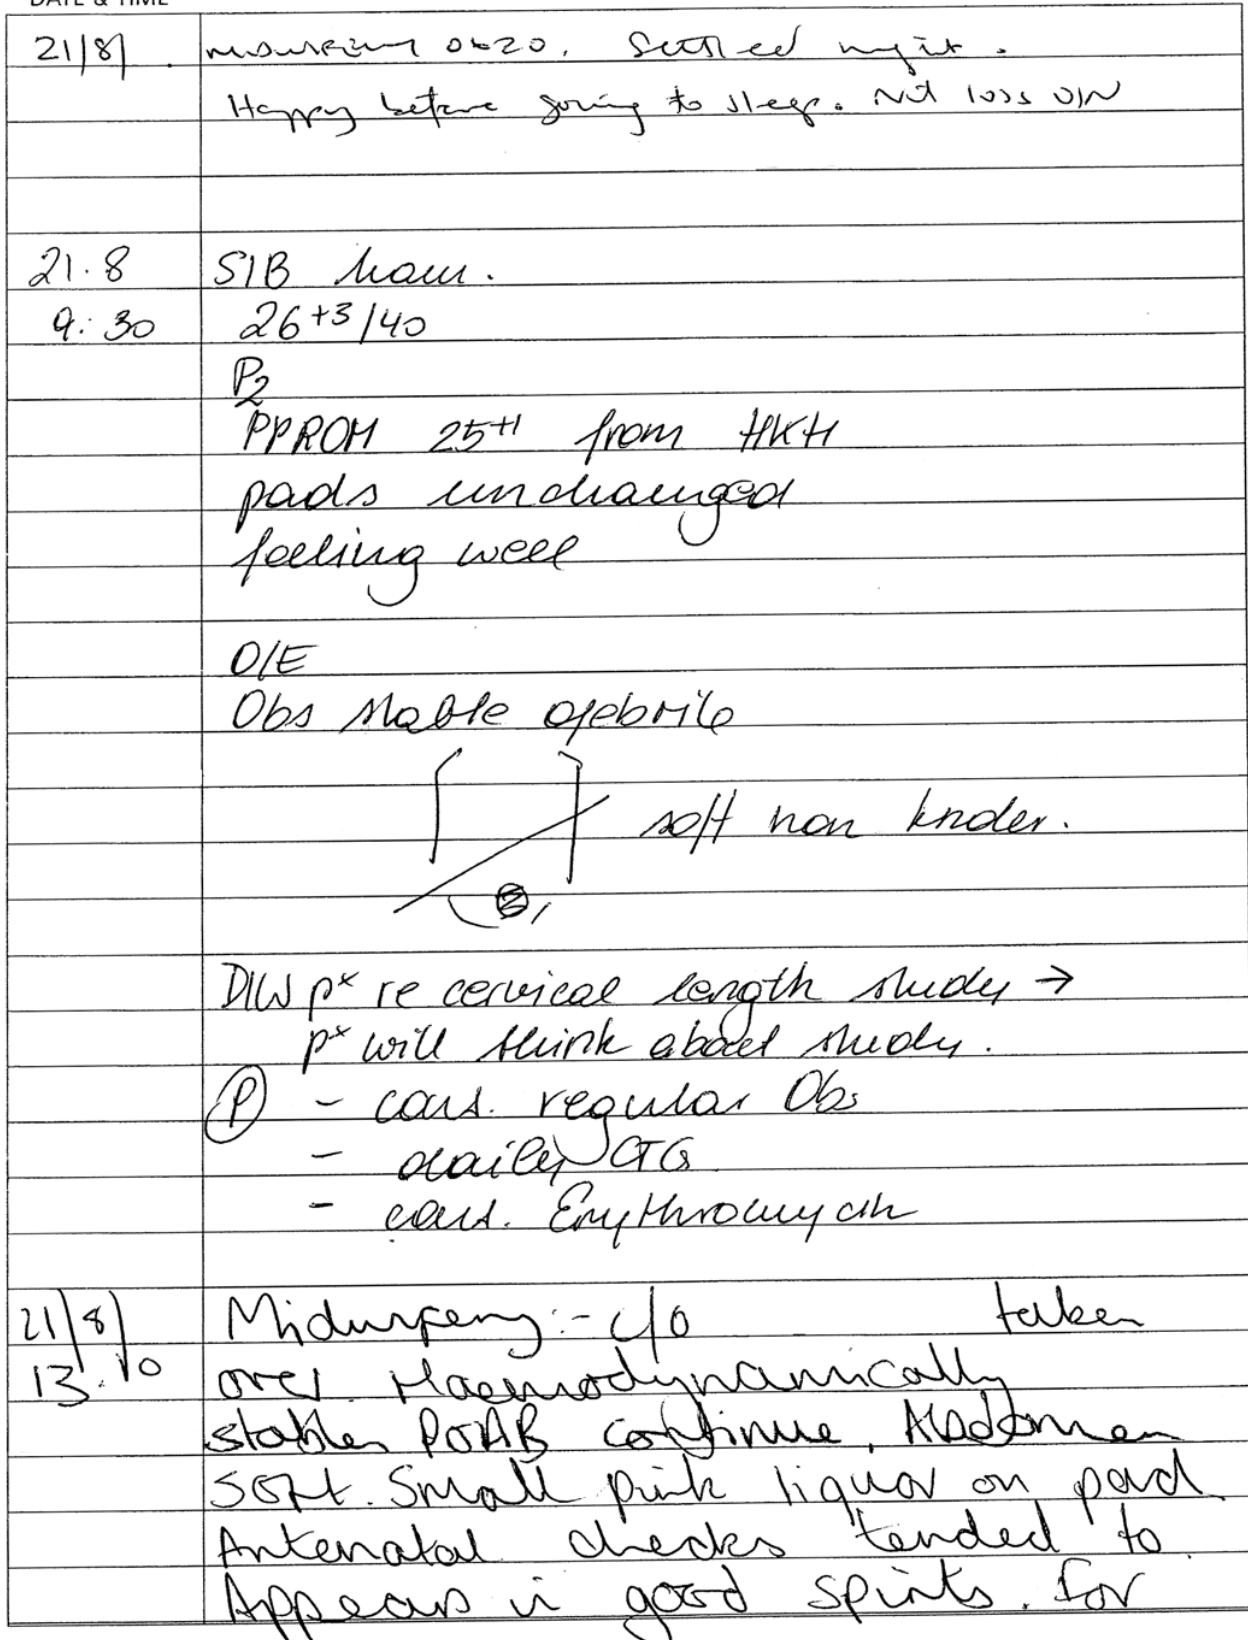 DATE & TIME
21/8/. Midwifery 0620. Settled night.
Happy before going to sleep. Nil loss O/N
21.8 S/B team.
9:30 26+3/40
P2
PPROM 25+1 from HKH
pads unchanged
feeling well
O/E
Obs stable afebrile
soft non tender.
D/W px re cervical length study →
px will think about study.
P - cont. regular Obs
- daily CTG
- cont. Erythromycin
21/8/ Midwifery:- c/o taken
13.10 over. Haemodynamically
stable, POAB continue. Abdomen
soft. Small pink liquor on pad
Antenatal checks tended to.
Appears in good spirits. For